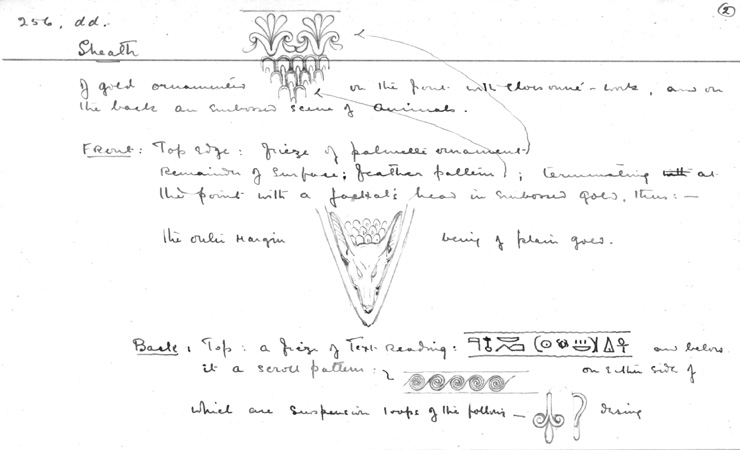 ②
256, dd.
Sheath
Of gold ornamented on the front with cloisonné-work, and on
the back an embossed scene of animals.
Front: Top Edge: frieze of palmette ornament
Remainder of surface; feather pattern; terminating with at
the point with a jackal's head in embossed gold, thus:—
The outer margin being of plain gold.
Back: Top: a frieze of Text reading: and below
it a scroll pattern: on either side of
which are suspension loops of the following — design